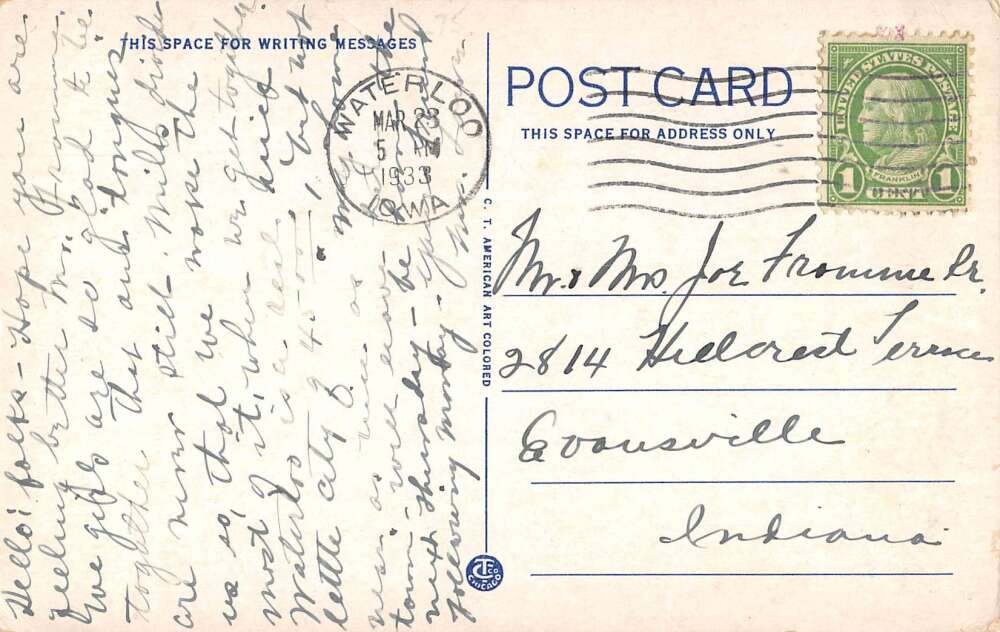 THIS SPACE FOR WRITING MESSAGES
POST CARD
THIS SPACE FOR ADDRESS ONLY
WATERLOO
MAR 28
5 PM
1933
IOWA
UNITED STATES POSTAGE
FRANKLIN
1 CENT 1
C. T. AMERICAN ART COLORED
CT CO CHICAGO
Mr. & Mrs. Joe Fromme Sr.
2814 Hillcrest Terrace
Evansville
Indiana
Hello! folks - Hope you are
feeling better Mr. Fromme
We girls are so glad to be
together. That our tongues
are never still. Mitts
us is, that we the
most of it, when we get together
Waterloo is a real
little city of 45,000, but not
near as as
town - will leave the
next Thursday - be
following Monday -